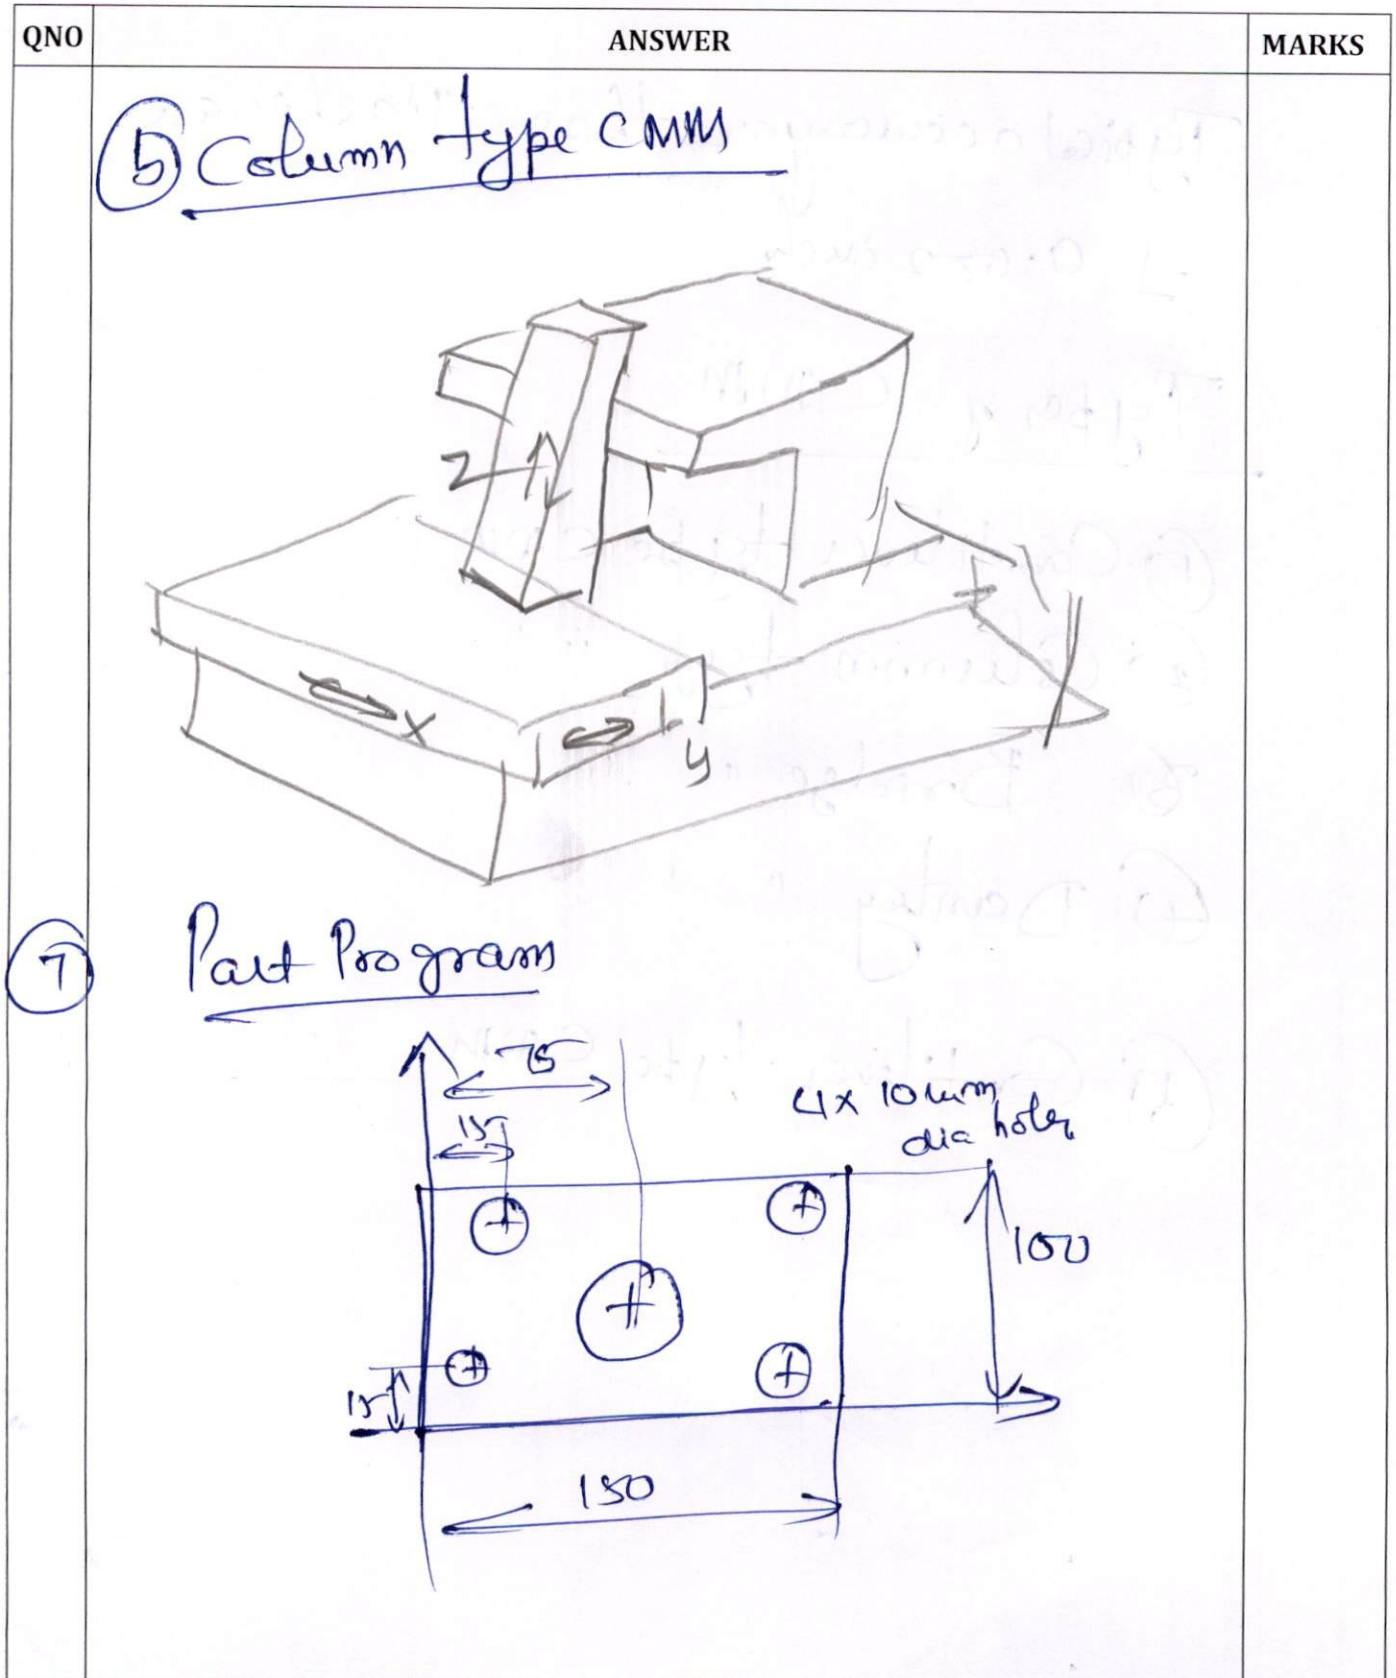 QNO ANSWER MARKS
5 Column type CMM
Z
X
y
7 Part Program
75
15
4x 10mm
dia holes
100
15
150